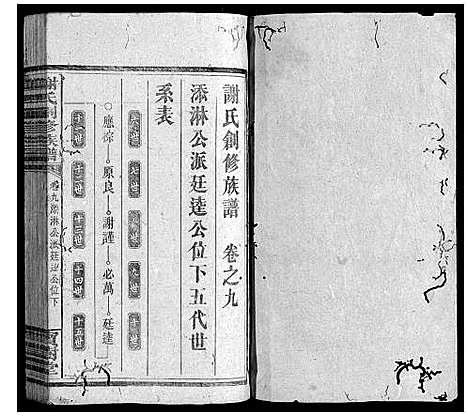 謝氏創修族譜 卷之九
添淋公派廷逵公位下五代世
系表
六世 七世 八世 九世 十世
應綵 原良 謝謹 必萬 廷逵
十一世 十二世 十三世 十四世 十五世
謝氏創修族譜 卷九添淋公派廷逵公位下 寶樹堂